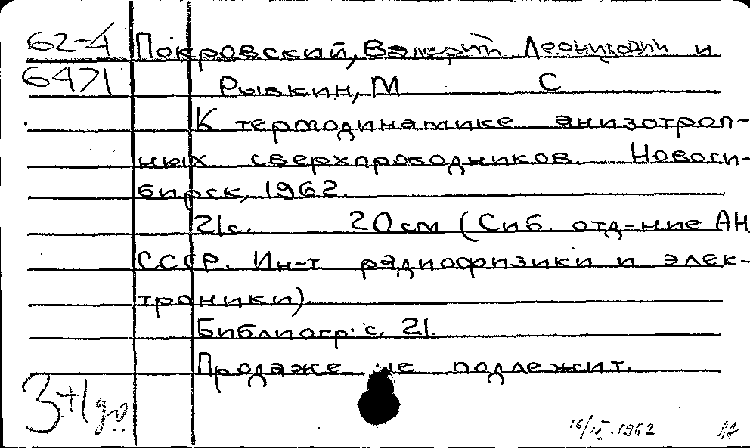 62-4 Покровский, Валерий Леонидович и
6471 Рывкин, М С
К термодинамике анизотроп-
ных сверхпроводников. Новоси-
бирск, 1962.
21с. 20см (Сиб. отд-ние АН
СССР. Ин-т радиофизики и элек-
троники)
Библиогр: с. 21.
Продаже не подлежит.
3+1
1962